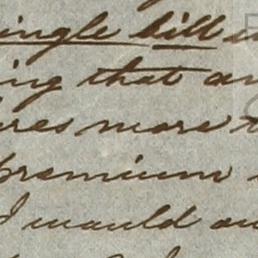 ingle bill
ing that an
ures more t
premium
I would an